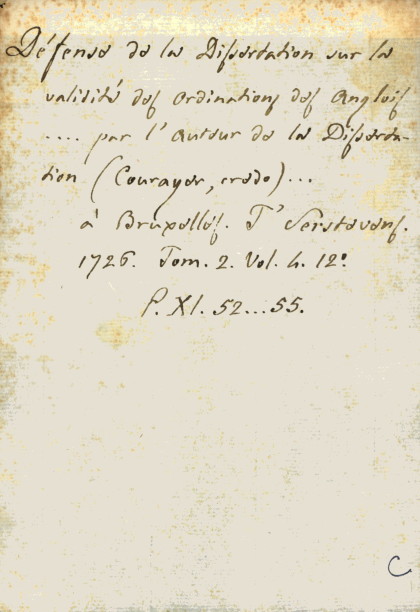 Défense de la Dissertation sur la
validité des ordinations des Anglois
.... par l'Auteur de la Disserta-
tion (Courayer, credo)...
à Bruxelles. T' Serstevens.
1726. Tom. 2. Vol. 4. 12º
P. XI. 52...55.
C